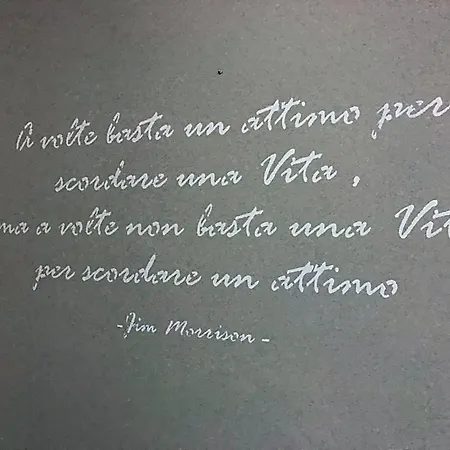 A volte basta un attimo per
scordare una Vita ,
ma a volte non basta una Vit
per scordare un attimo
-Jim Morrison-